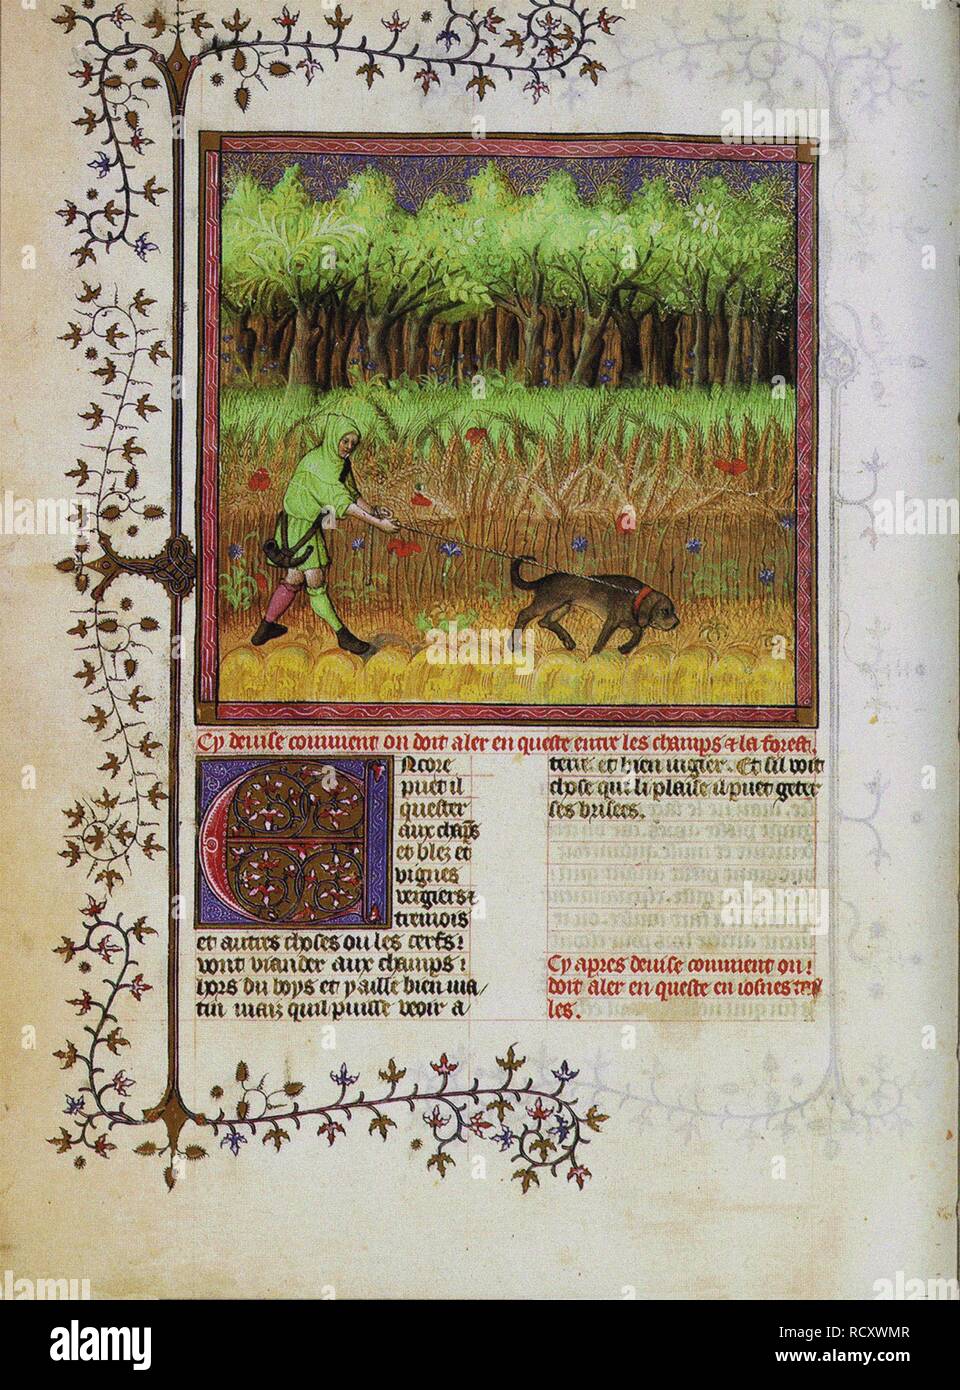 Cy deuise comment on doit aler en queste entre les champs & la forest.
Ncore
puet il
quester
aux chaps
et blez et
vignes
vergiers &
tremois
et autres choses ou les cerfs
vont viander aux champs
hors du boys et y aille bien ma
tin maiz quil puisse veoir a
terre et bien iugier. Et sil voit
chose qui li plaise il puet geter
ses brisees.
Cy apres deuise comment on
doit aler en queste en iosnes tail
les.
alamy
Image ID: RCXWMR
www.alamy.com